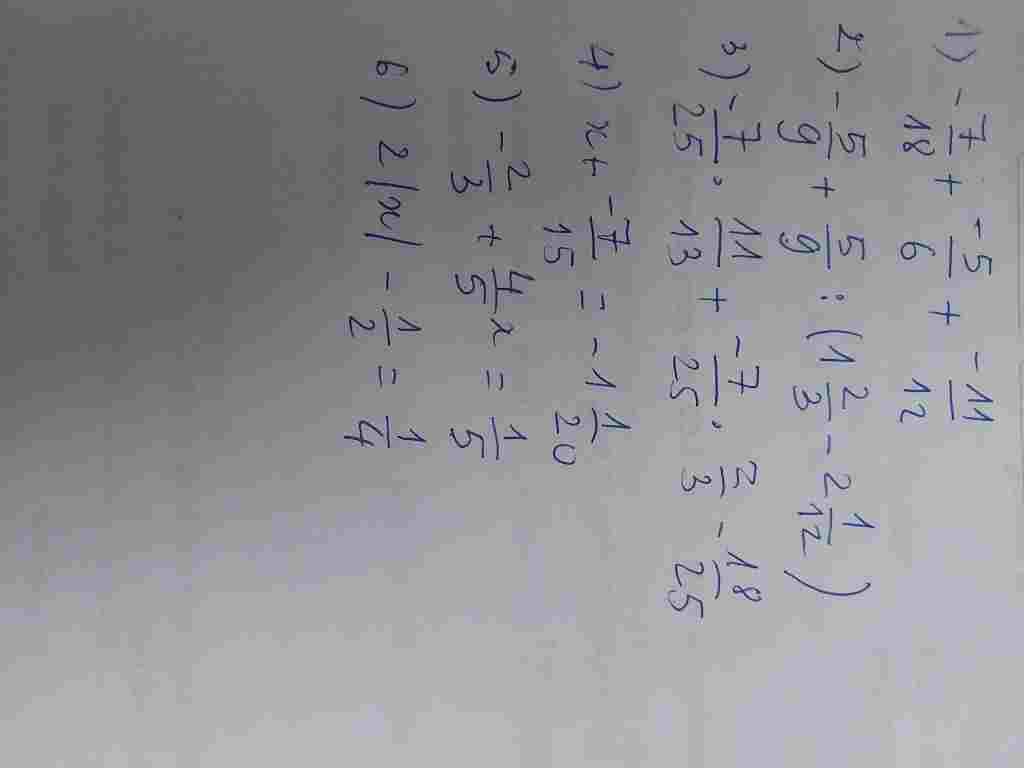 1) -7/18 + -5/6 + -11/12
2) -5/9 + 5/9 : (1 2/3 - 2 1/12)
3) -7/25 . 11/13 + -7/25 . 2/3 - 18/25
4) x + -7/15 = -1 1/20
5) -2/3 + 4/5 x = 1/5
6) 2|x| - 1/2 = 1/4